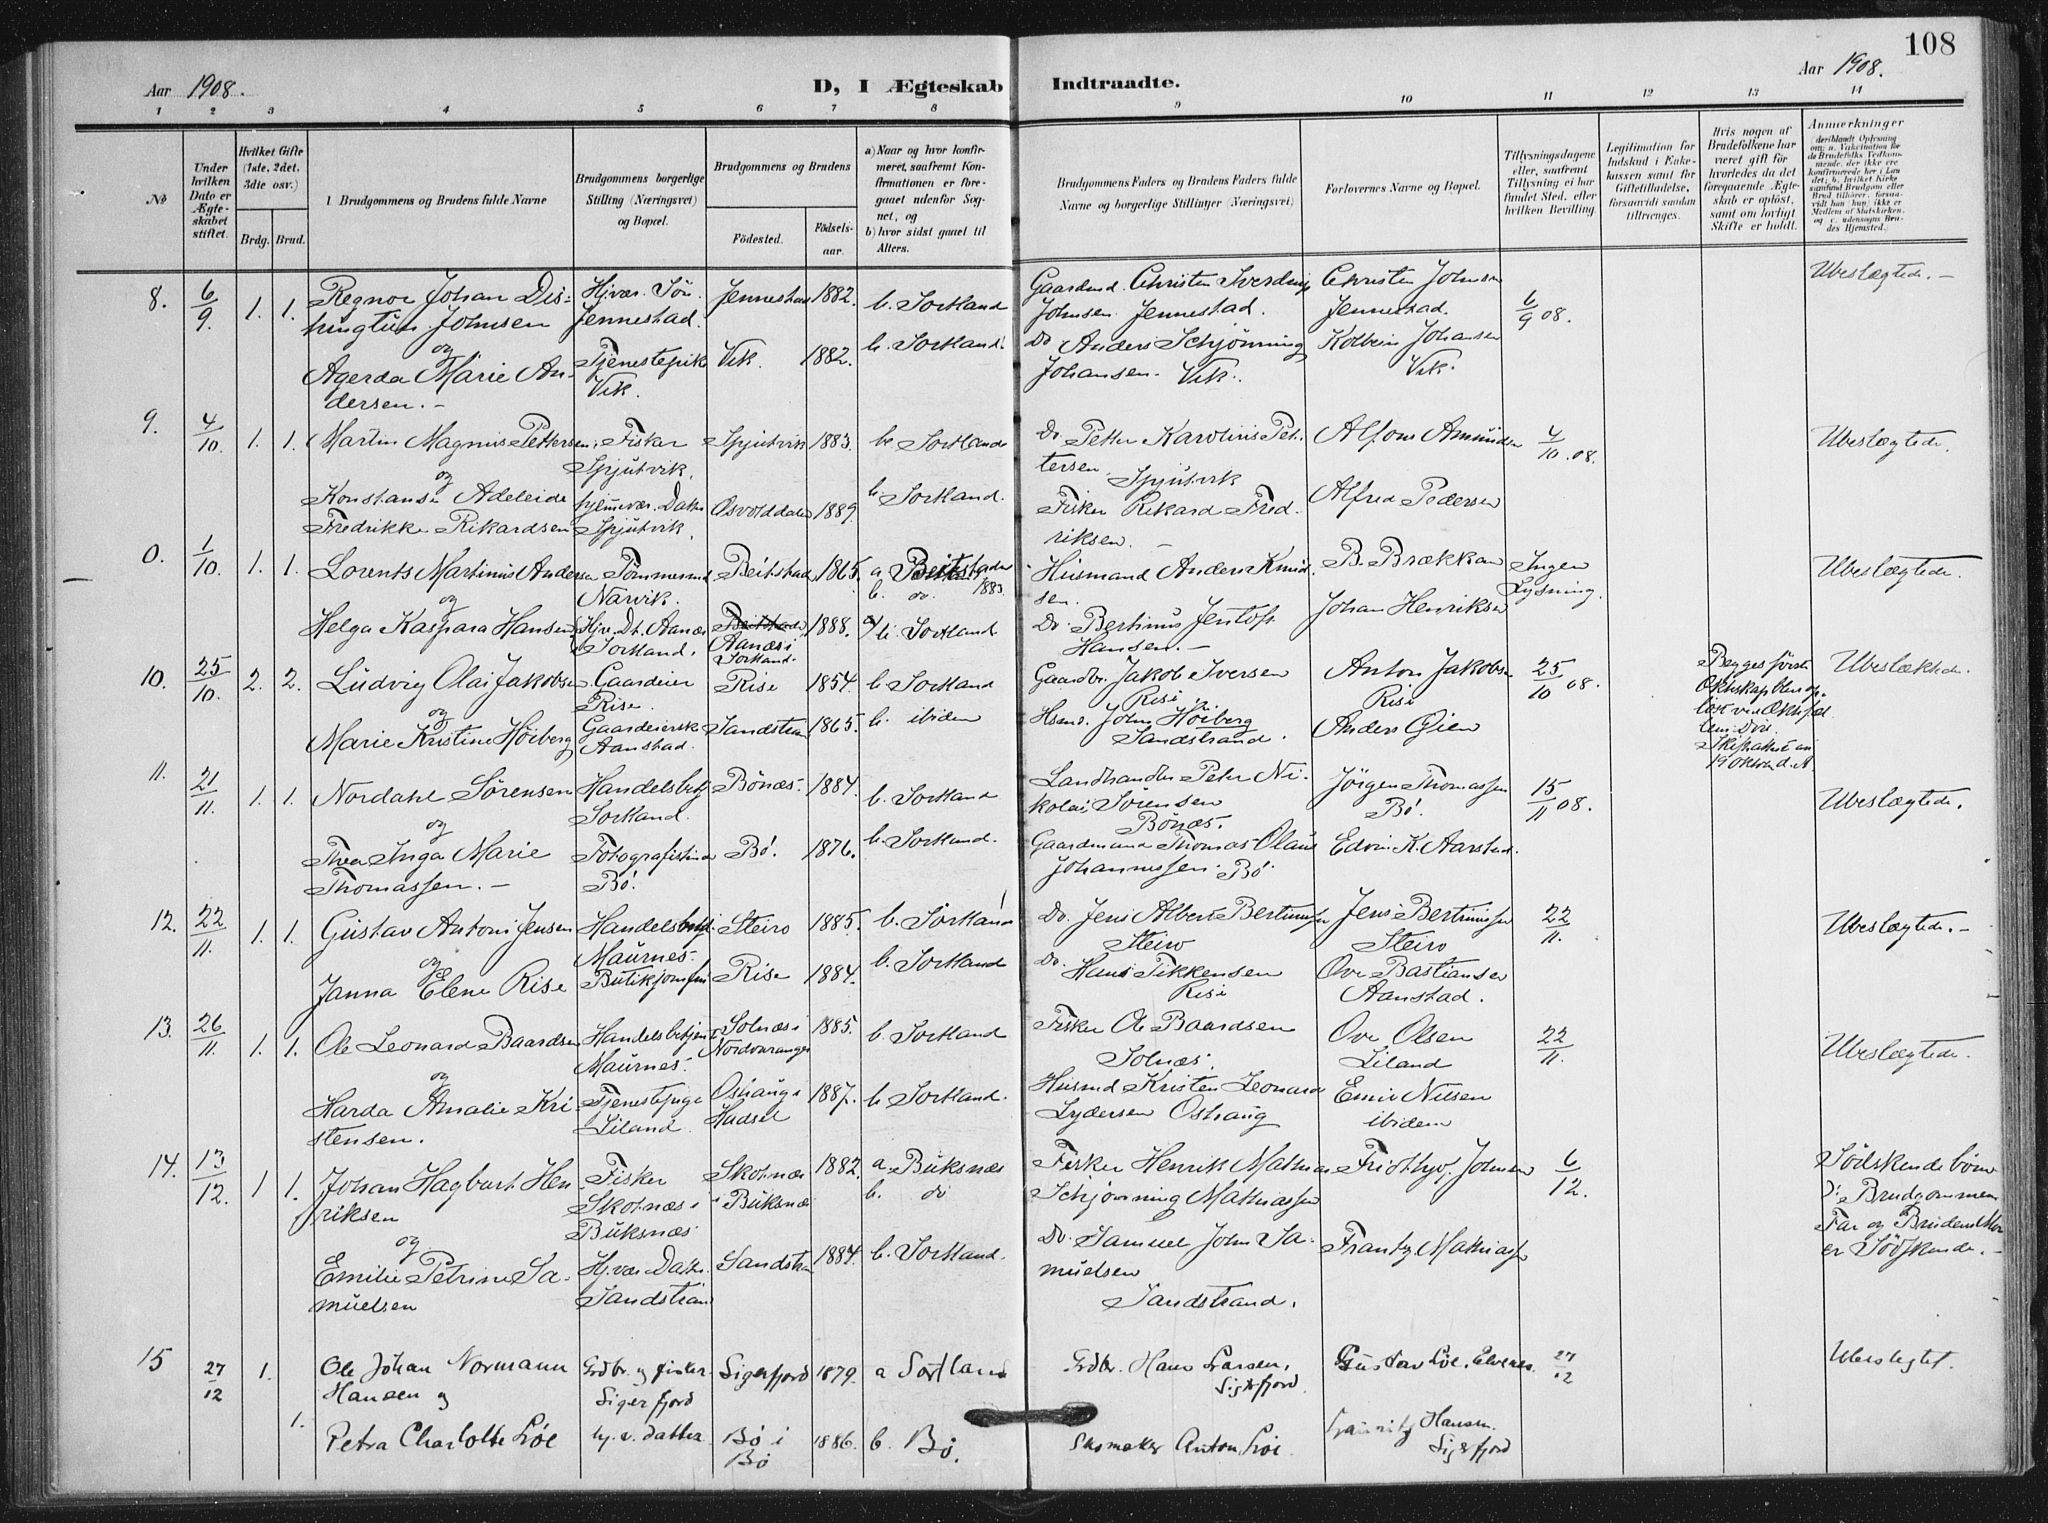 108
Aar 1908.
D, I Ægteskab Indtraadte.
Aar 1908.
1 2 3 4 5 6 7 8 9 10 11 12 13 14
No
Under hvilken Dato er Ægteskabet stiftet.
Hvilket Gifte (1ste, 2det, 3die osv.)
Brdg. Brud.
Brudgommens og Brudens fulde Navne
Brudgommens borgerlige Stilling (Næringsvei) og Bopæl.
Brudgommens og Brudens
Fødested. Fødselsaar.
a) Naar og hvor konfirmeret, saafremt Konfirmationen er foregaaet udenfor Sognet, og
b) hvor sidst gaaet til Alters.
Brudgommens Faders og Brudens Faders fulde Navne og borgerlige Stillinger (Næringsvei)
Forlovernes Navne og Bopæl.
Tillysningsdagene eller, saafremt Tillysning ei har fundet Sted, efter hvilken Bevilling.
Legitimation for Indskud i Enkekassen samt for Giftetilladelse, forsaavidt saadan tiltrænges.
Hvis nogen af Brudefolkene har været gift før hvorledes da det foregaaende Ægteskab er opløst, samt om lovligt Skifte er holdt.
Anmerkninger
8. 6/9 1. 1. Regnor Johan Dis- Hj.vær. Søn. Jennestad 1882. b. Sortland Gaardmd. Christen Sverdrup Christen Johnsen 6/9 08. Ubeslægtede. -
Johnsen Jennestad. Johnsen Jennestad. Jennestad.
og Tjenestepike Vik. 1882. b. Sortland. Do Anders Schjønning Kolbein Johansen
Agerda Marie An- Vik. Johansen. Vik. Vik.
dersen. -
9. 4/10 1. 1. Martin Magnus Pettersen Fisker Spjutvik 1883. b. Sortland Do. Petter Karolius Pet- Alfons Amundsen 4/10 08. Ubeslægtede.
og Spjutvik. tersen. Spjutvik
Konstanse Adeleide hjemmevær. Datter Osvolddalen 1889. b. Sortland. Fisker Rikard Fred- Alfred Pedersen
Fredrikke Rikardsen Spjutvik. riksen. -
0. 1/10 1. 1. Lorents Martinus Andersen Tømmermd Beitstad 1865. a Beitstaden 1883. Husmand Anders Knud- B. Brækkan Ingen Ubeslægtede.
og Narvik. b. do. sen. Lysning.
Helga Kaspara Hansen Hjv. Dt. Aanæs Sortland. Aanæs i Sortland. 1888. b. Sortland Do. Bertinus Jentoft Hansen. - Johan Henriksen
10. 25/10 2. 2. Ludvig Olai Jakobsen Gaardeier Rise 1854. b. Sortland Gaardbr. Jakob Iversen Anton Jakobsen 25/10 08. Begges første Ubeslektede.
og Rise. Rise Rise
Marie Kristine Høiberg Gaardeierske Sandstran 1865. b. ibidem Hsmd. John Høiberg Anders Øien
Aanstad. Sandstrand.
11. 21/11 1. 1. Nordahl Sørensen Handelsbetj Bønæs. 1884. b. Sortland Landhandler Peter Ni- Jørgen Thomassen 15/11 08. Ubeslægtede.
og Sortland. kolai Sørensen Bønæs. Bø.
Thea Inga Marie Fotografistinde Bø. 1876. b. Sortland. Gaardmand Thomas Olaus Edvin K. Aarstad.
Thomassen. - Bø. Johannessen. Bø.
12. 22/11 1. 1. Gustav Antoni Jensen Handelsbetj. Steiro 1885. b. Sortland Do. Jens Albert Bertinussen Jens Bertinussen 22/11. Ubeslægtede. -
og Maurnes. Steiro Steiro
Janna Elene Rise Butikjomfru Rise 1884. b. Sortland Do. Hans Rise Ove Bastiansen Aanstad.
13. 26/11 1. 1. Ole Leonard Baardsen Handelsbetjent Solnæs i Nordvaranger 1885. b. Sortland Fisker Ole Baardsen Ove Olsen 22/11. Ubeslægtede.
og Maurnes. Solnæs. Liland
Harda Amalie Kri- Tjenestepige Oshaug i Hadsel 1887. b. Sortland. Husmd Kristen Leonard Emil Nilsen
stensen. Liland. Lydersen Oshaug ibidem
14. 13/12. 1 1. Johan Hagbart Hen- Fisker Skotnæs 1882. a Buksnæs Fisker Henrik Mathias Fridthjof Johnsen 6/12. Sødskendebørn
riksen Skotnæs i Buksnæs i Buksnæs b. do Schjønning Mathiassen Brudgommens
og Far og Brudens Mor
Emilie Petrine Sa- Hj.vær. Datter Sandstran 1884. b. Sortland. Do. Samuel John Sa- Frantz Mathiassen er Sødskende. -
muelsen Sandstran muelsen Sandstrand.
15 27/12 1. Ole Johan Normann Grdbr. og fisker Sigerfjord 1879. a Sortland Grdbr. Hans Larsen, Gustav Løe, Elvenes. 27/12 Ubeslegtet.
Hansen og Sigerfjord Sigerfjord.
1. Petra Charlotte Løe hj. v. datter Bø i Bø 1886. b. Bø. Skomaker Anton Løe. Hansen. Sigerfjord